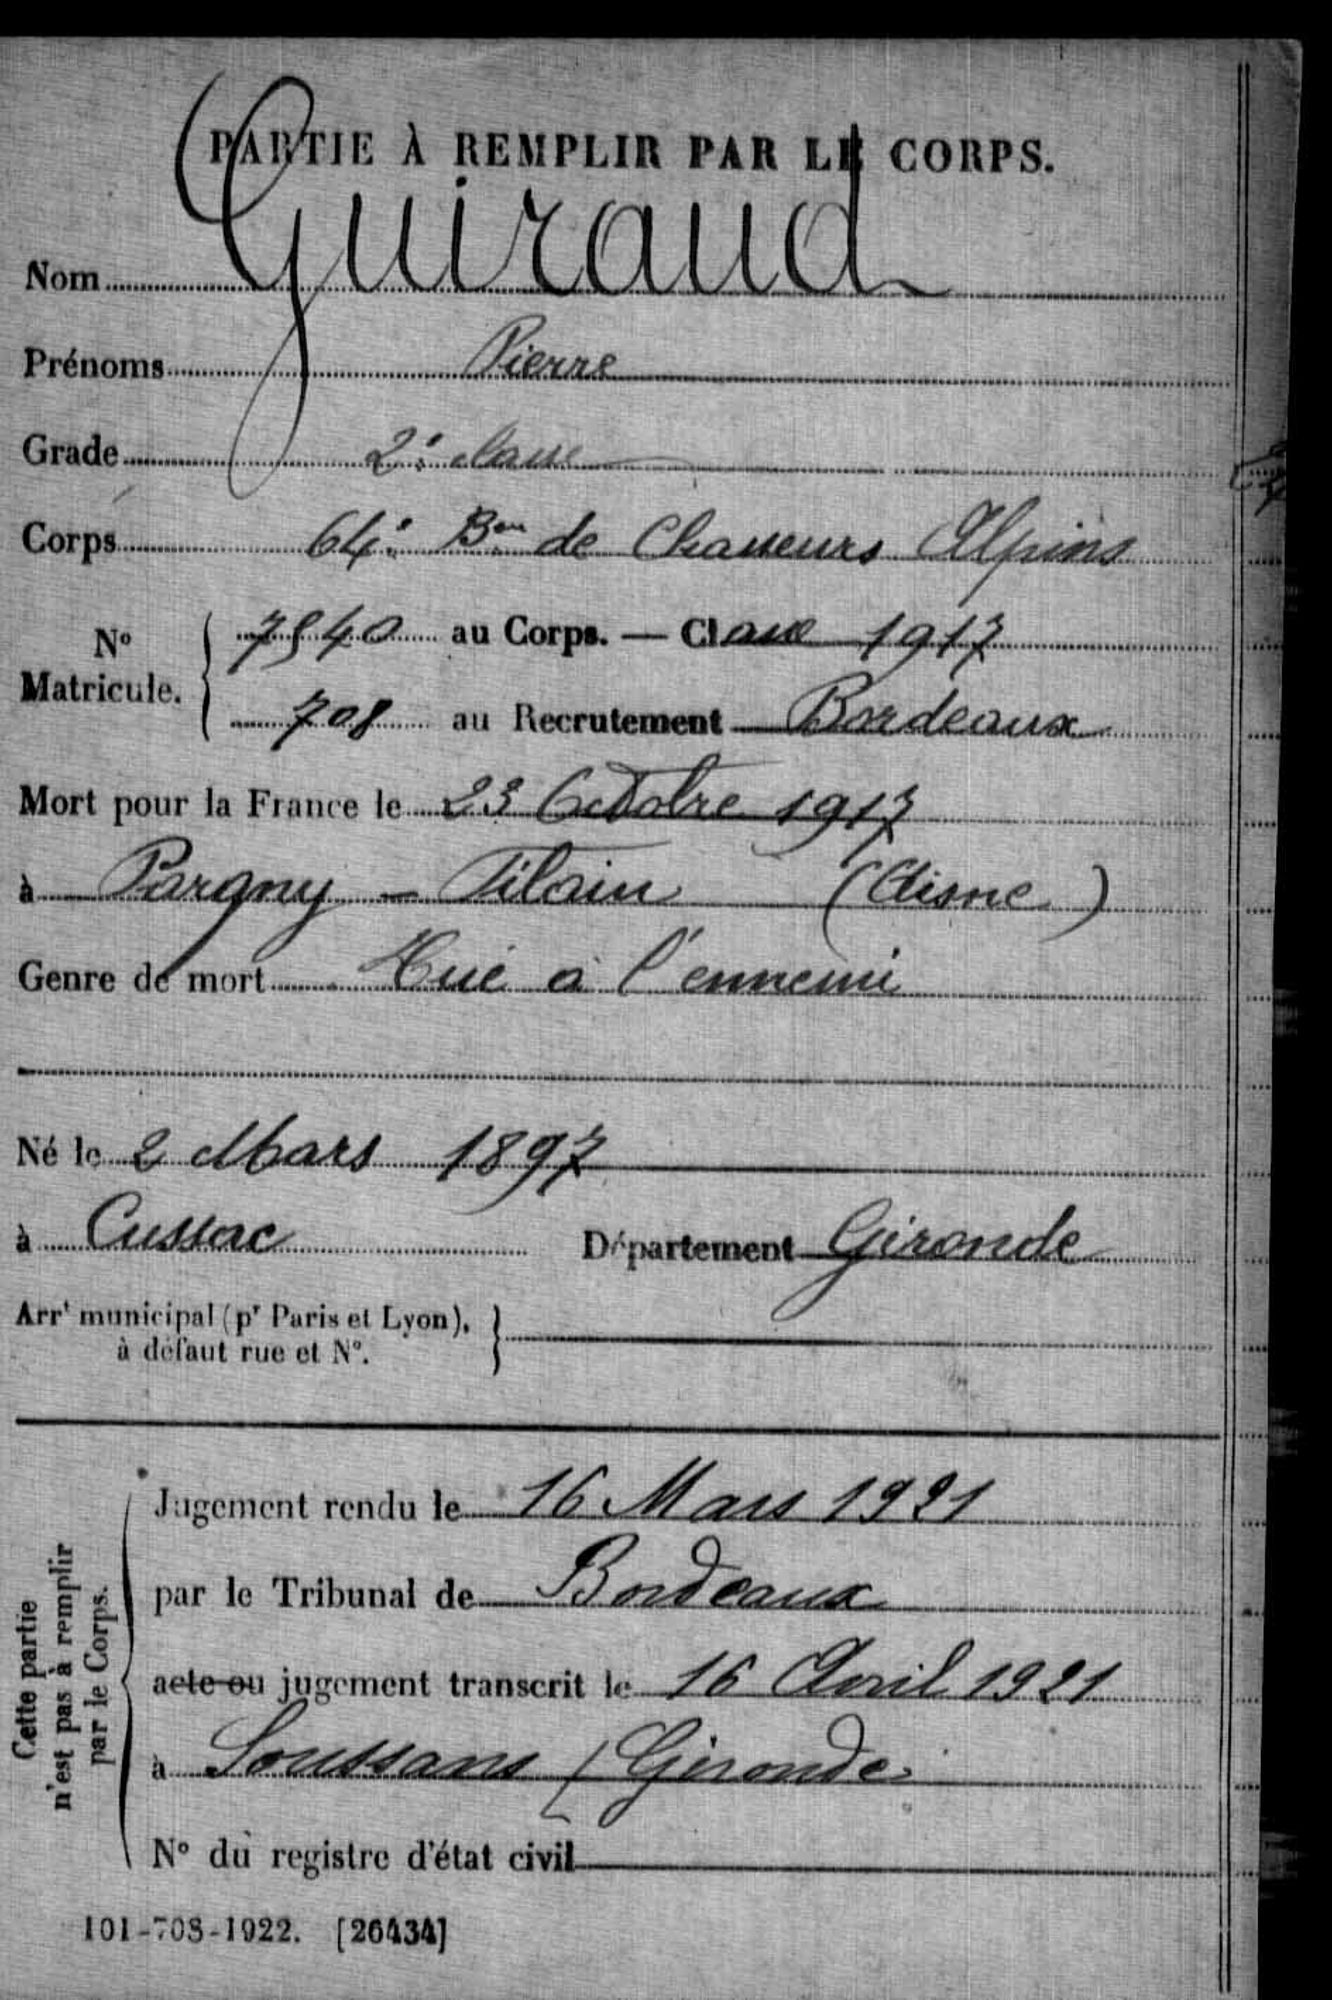 PARTIE À REMPLIR PAR LE CORPS.
Nom Guiraud
Prénoms Pierre
Grade 2e classe
Corps 64e Bon de Chasseurs Alpins
N° Matricule. { 7540 au Corps. — Classe 1917
708 au Recrutement Bordeaux
Mort pour la France le 23 Octobre 1917
à Pargny - Filain (Aisne)
Genre de mort Tué à l'ennemi
Né le 2 Mars 1897
à Cussac Département Gironde
Arrt municipal (pr Paris et Lyon),
à défaut rue et N°.
Cette partie
n'est pas à remplir
par le Corps.
Jugement rendu le 16 Mars 1921
par le Tribunal de Bordeaux
acte ou jugement transcrit le 16 Avril 1921
à Soussans (Gironde
N° du registre d'état civil
101-708-1922. [26434]